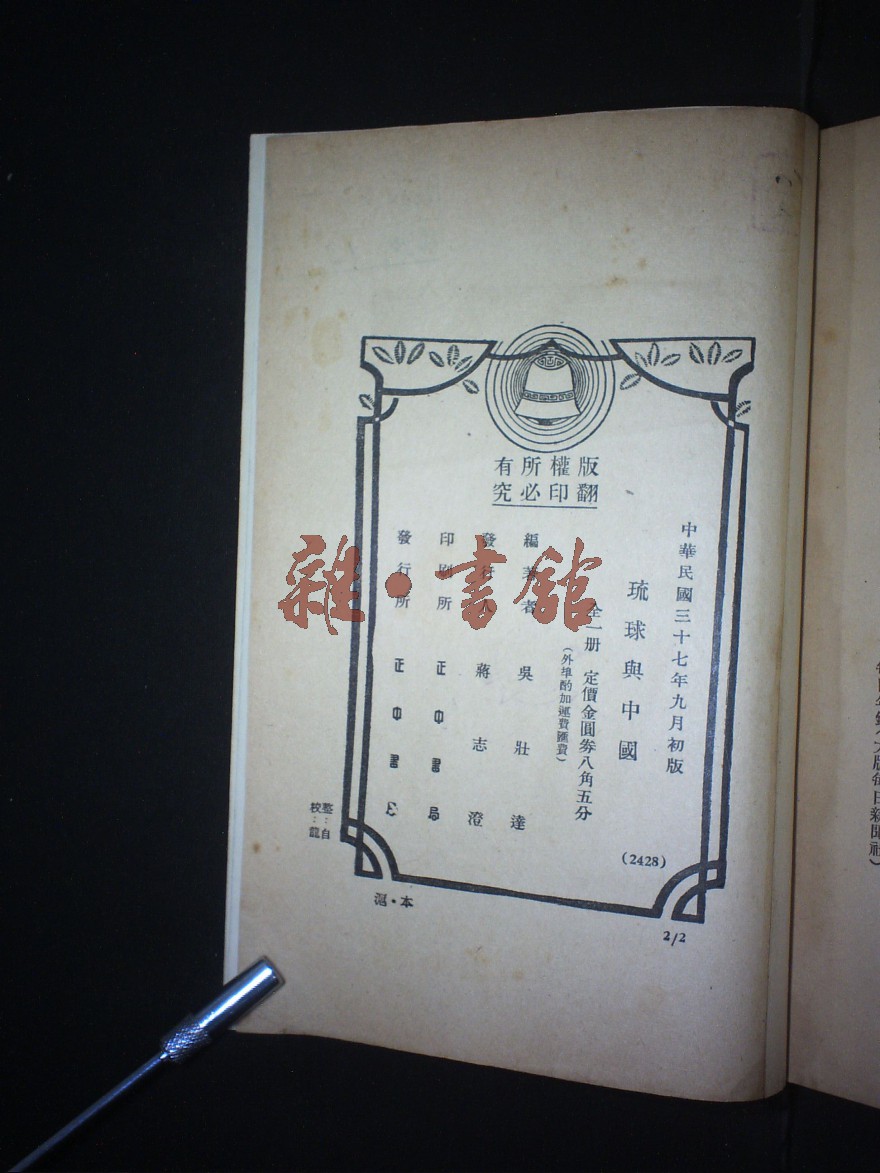 版權所有
翻印必究
中華民國三十七年九月初版
琉球與中國
全一册 定價金圓券八角五分
(外埠酌加運費匯費)
編著者 吳壯達
發行人 蔣志澄
印刷所 正中書局
發行所 正中書局
(2428)
整:自
校:龍
滬·本
2/2
雜·書館